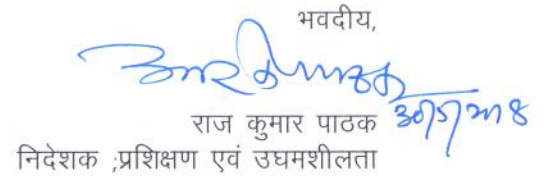 भवदीय,
30/5/2018
राज कुमार पाठक
निदेशक ;प्रशिक्षण एवं उघमशीलता